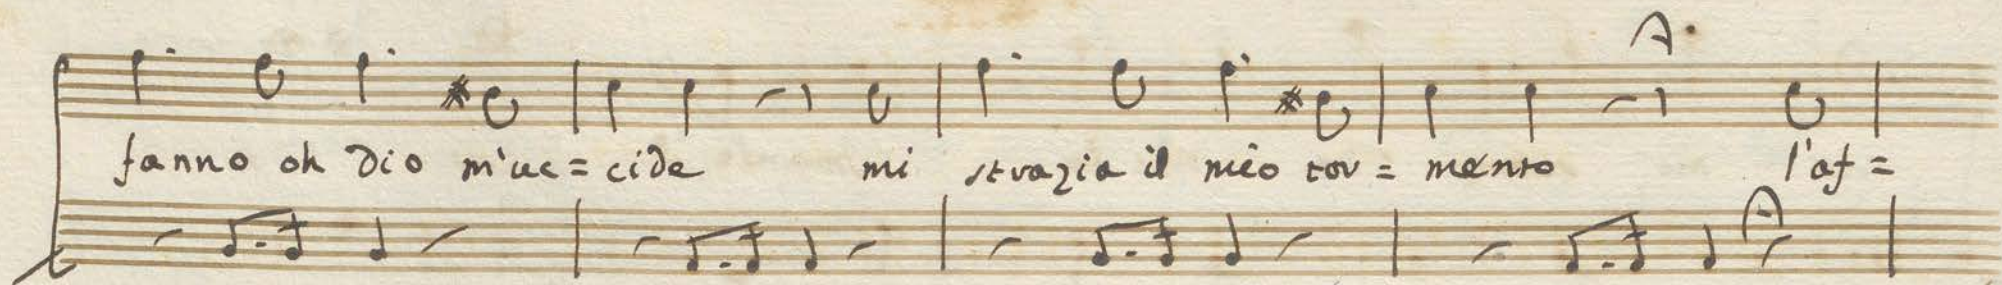 fanno oh dio m'uc = cide mi strazia il mio tor = mento l'af =